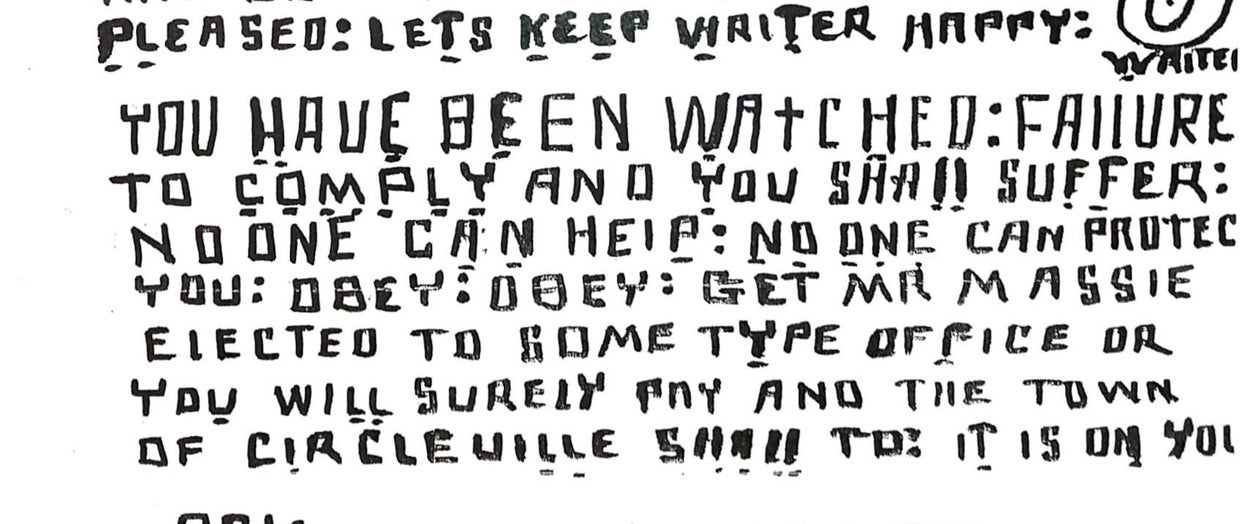 PLEASED: LETS KEEP WRITER HAPPY:
WRITE
YOU HAVE BEEN WATCHED: FAILURE
TO COMPLY AND YOU SHALL SUFFER:
NO ONE CAN HELP: NO ONE CAN PROTEC
YOU: OBEY: OBEY: GET MR MASSIE
ELECTED TO SOME TYPE OFFICE OR
YOU WILL SURELY PAY AND THE TOWN
OF CIRCLEVILLE SHALL TO: IT IS ON YOU